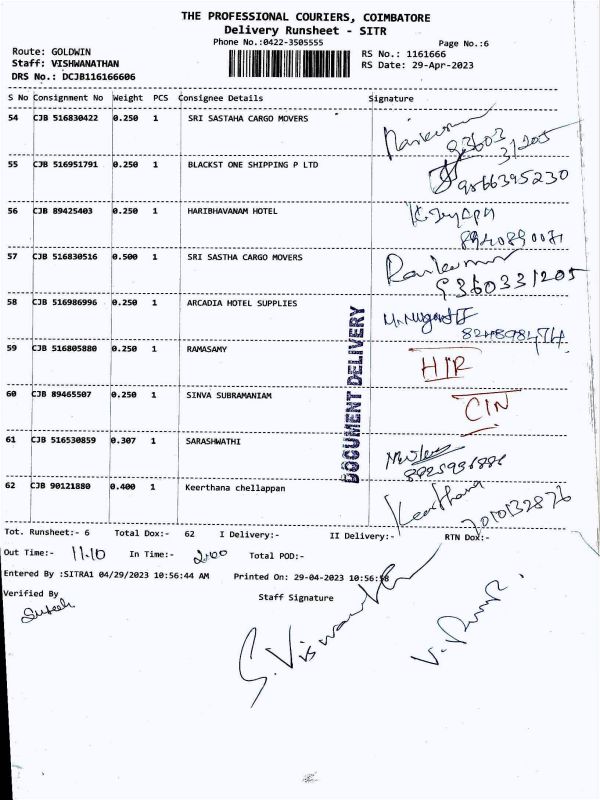 THE PROFESSIONAL COURIERS, COIMBATORE
Delivery Runsheet - SITR
Phone No.:0422-3505555 Page No.:6
Route: GOLDWIN RS No.: 1161666
Staff: VISHWANATHAN RS Date: 29-Apr-2023
DRS No.: DCJB116166606
S No Consignment No Weight PCS Consignee Details Signature
54 CJB 516830422 0.250 1 SRI SASTAHA CARGO MOVERS
55 CJB 516951791 0.250 1 BLACKST ONE SHIPPING P LTD 9566395230
56 CJB 89425403 0.250 1 HARIBHAVANAM HOTEL
57 CJB 516830516 0.500 1 SRI SASTHA CARGO MOVERS 9360331205
58 CJB 516986996 0.250 1 ARCADIA HOTEL SUPPLIES
59 CJB 516805880 0.250 1 RAMASAMY H/R
60 CJB 89465507 0.250 1 SINVA SUBRAMANIAM C/N
61 CJB 516530859 0.307 1 SARASHWATHI
62 CJB 90121880 0.400 1 Keerthana chellappan Keerthana 7010132876
DOCUMENT DELIVERY
Tot. Runsheet:- 6 Total Dox:- 62 I Delivery:- II Delivery:- RTN Dox:-
Out Time:- 11.10 In Time:- 2.00 Total POD:-
Entered By :SITRA1 04/29/2023 10:56:44 AM Printed On: 29-04-2023 10:56:58
Verified By Staff Signature
S. Viswanath